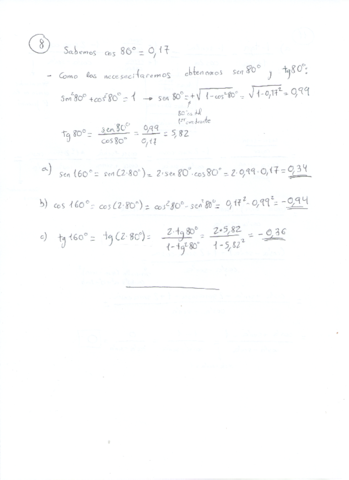 8
Sabemos cos 80° = 0,17
- Como las necesitaremos obtenemos sen 80° y tg 80°:
sen²80° + cos²80° = 1 → sen 80° = +√(1-cos²80°) = √(1-0,17²) = 0,99
80° está
1er cuadrante
tg 80° = sen 80° / cos 80° = 0,99 / 0,17 = 5,82
a) sen 160° = sen (2·80°) = 2·sen 80°·cos 80° = 2·0,99·0,17 = 0,34
b) cos 160° = cos (2·80°) = cos²80° - sen²80° = 0,17² - 0,99² = -0,94
c) tg 160° = tg (2·80°) = 2·tg 80° / 1-tg²80° = 2·5,82 / 1-5,82² = -0,36